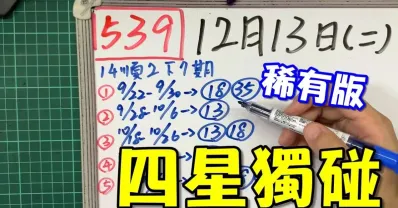 539 12月13日(二)
稀有版
14順2下7期
① 9/22-9/30→ 18 35
② 9/28-10/6→ 13
③ 10/18-10/26→ 13 18
④
⑤
四星獨碰